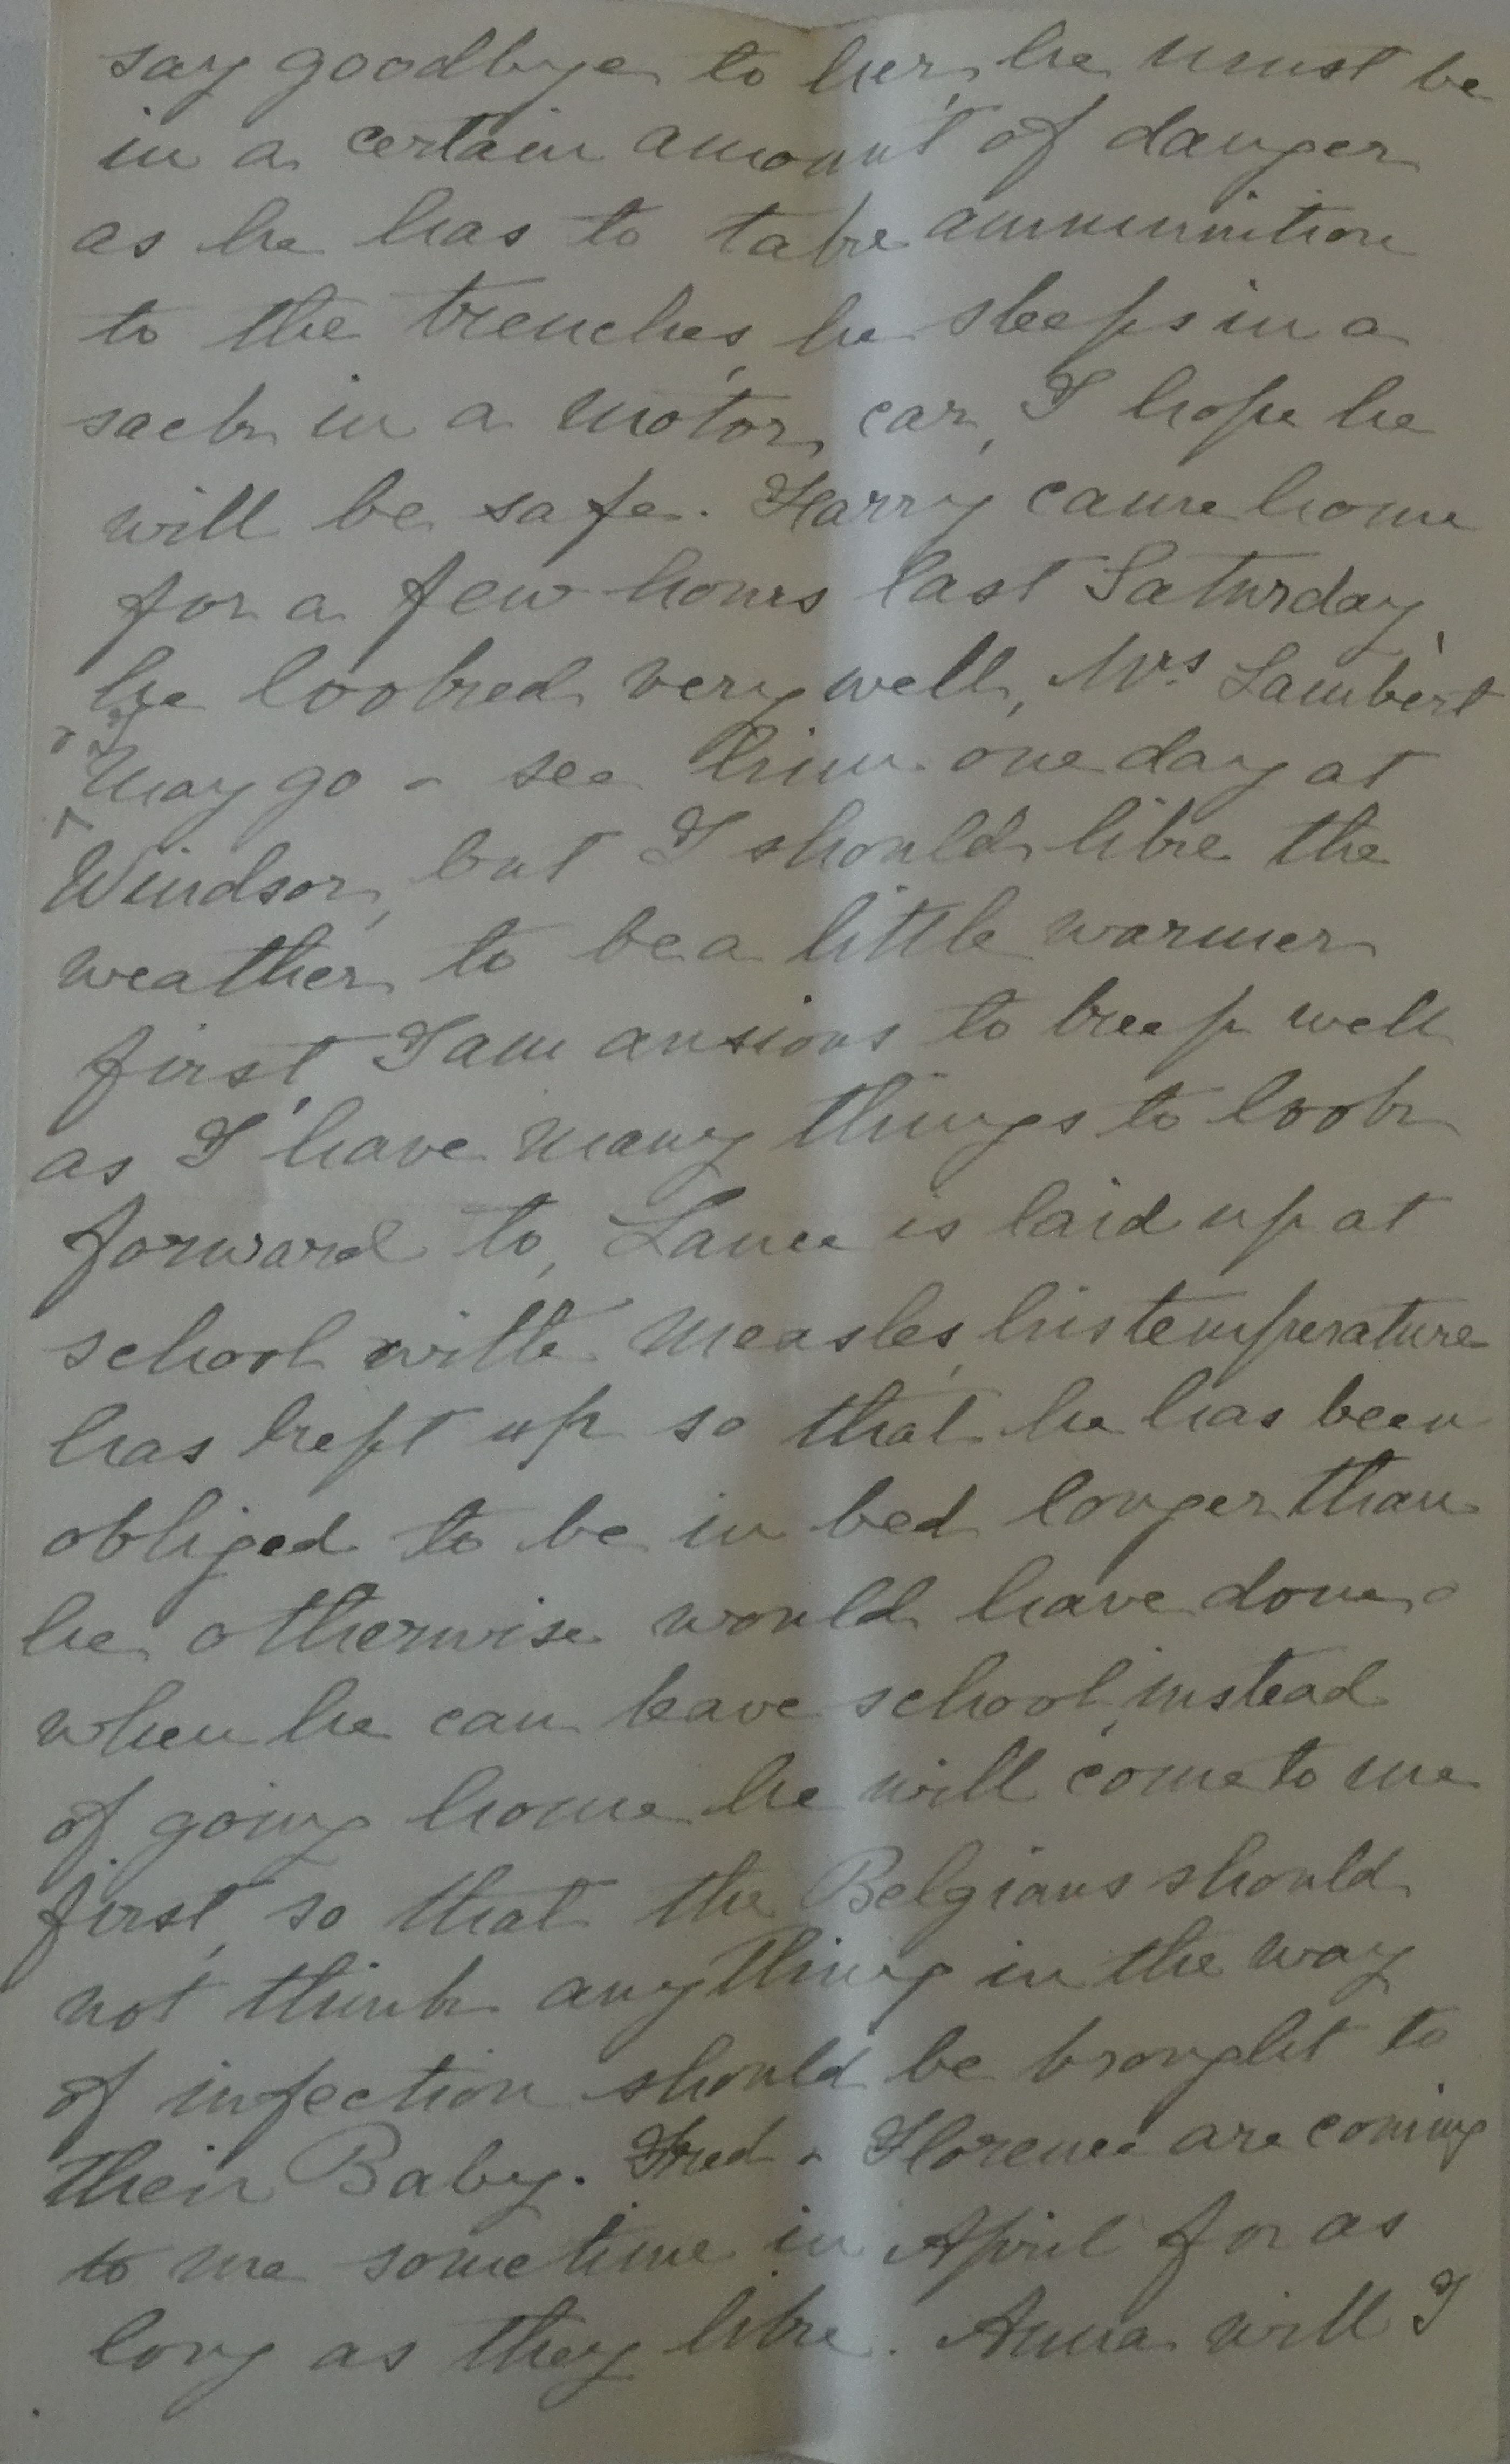 say goodbye to her, he must be
in a certain amount of danger
as he has to take ammunition
to the trenches, he sleeps in a
sack in a motor car, I hope he
will be safe. Harry came home
for a few hours last Saturday,
he looked very well, Mrs Lambert
& I may go & see him one day at
Windsor, but I should like the
weather to be a little warmer
first, I am anxious to keep well
as I have many things to look
forward to, Lance is laid up at
school with measles, his temperature
has kept up so that he has been
obliged to be in bed longer than
he otherwise would have done &
when he can leave school, instead
of going home he will come to me
first, so that the Belgians should
not think anything in the way
of infection should be brought to
their Baby. Fred & Florence are coming
to me sometime in April for as
long as they like. Anna will I